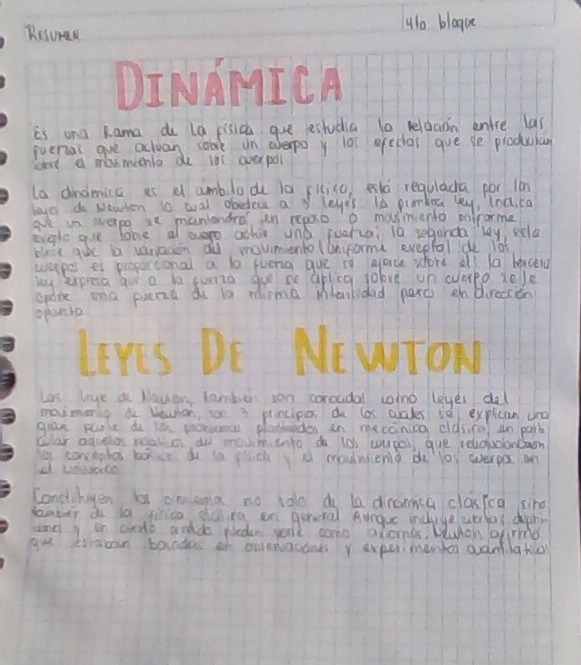 RESUMEN
4to bloque
DINÁMICA
Es una Rama de la física que estudia la relación entre las
fuerzas que actuan sobre un cuerpo y los efectos que se producirán
sobre el movimiento de los cuerpos
La dinámica es el ambito de la física, está regulada por las
leyes de Newton la cual obedece a 3 leyes la primera ley, indica
que un cuerpo se mantendrá en reposo o movimiento uniforme
exepto que sobre el cuerpo actúe una fuerza; la segunda ley, esta
blece que la variación del movimiento uniforme exeptol de los
cuerpos es proporcional a la fuerza que se ejerce sobre él; la tercera
ley expresa que a la fuerza que se aplica sobre un cuerpo se le
opone una fuerza de la misma intensidad pero en dirección
opuesta
LEYES DE NEWTON
Las leye de Newton, también son conocidas como leyes del
movimiento de Newton, son 3 principios de los cuales se explican una
gran parte de los problemas planteados en meccánica clásica, en parti
cular aquellos relativos de movimiento de los cuerpos, que revolucionaron
los conceptos básicos de la física y el movimiento de los cuerpos en
el universo
Constituyen los no solo de la dinámica clásica sino
también de la física clásica en general Aunque incluye ciertas
y en cierto pueden verse como axiomas, Newton afirmó
que estaban basadas en observaciones y experimentos